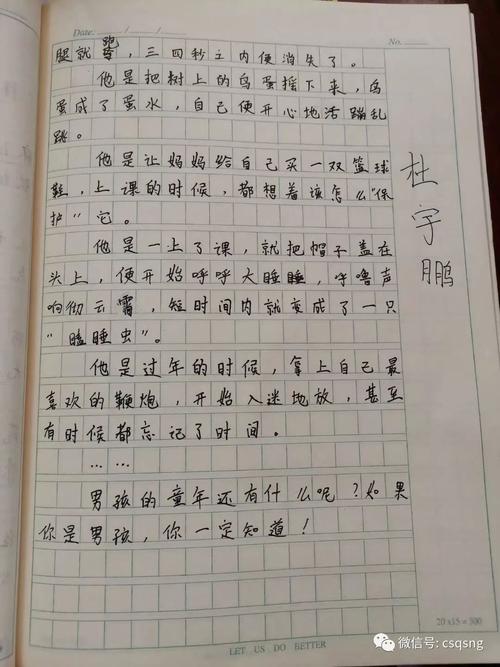 Date: / /
No.
腿就跑，三四秒之内便消失了。
他是把树上的鸟蛋摇下来，鸟
蛋成了蛋水，自己便开心地活蹦乱
跳。
他是让妈妈给自己买一双篮球
鞋，上课的时候，都想着该怎么“保
护”它。
他是一上了课，就把帽子盖在
头上，便开始呼呼大睡睡，呼噜声
响彻云霄，短时间内就变成了一只
“瞌睡虫”。
他是过年的时候，拿上自己最
喜欢的鞭炮，开始入迷地放，甚至
有时候都忘记了时间。
……
男孩的童年还有什么呢？如果
你是男孩，你一定知道！
杜宇鹏
20×15=300
LET US DO BETTER
微信号: csqsng